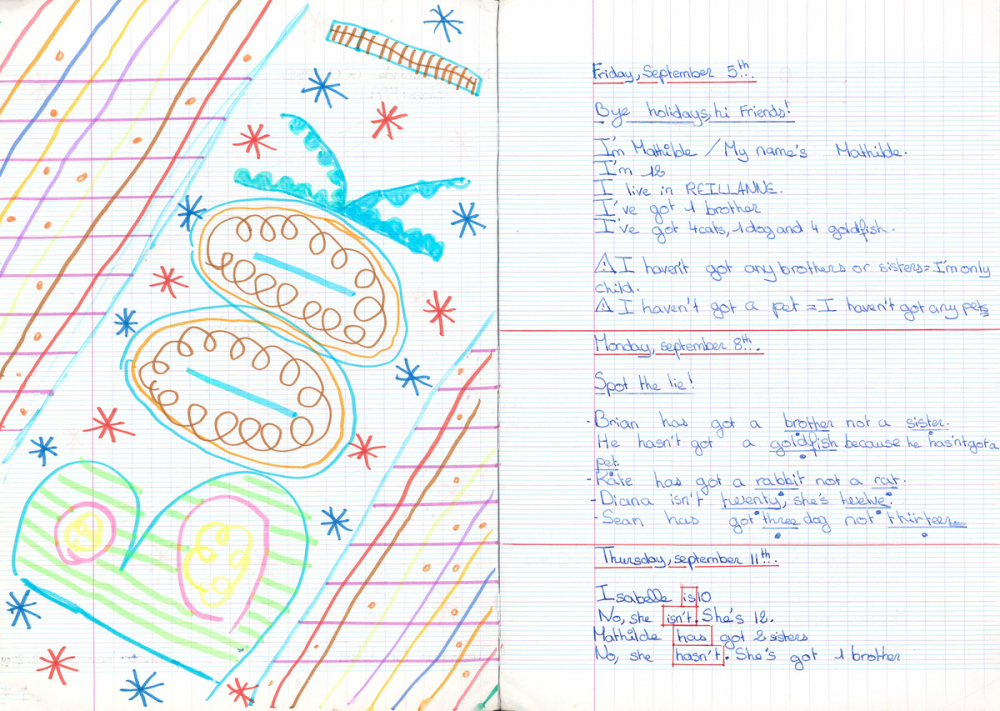 Friday, September 5th.
Bye holidays, hi Friends!
I'm Mathilde / My name's Mathilde.
I'm 12
I live in REILLANNE.
I've got 1 brother
I've got 4 cats, 1 dog and 4 goldfish.
⚠ I haven't got any brothers or sisters = I'm only
child.
⚠ I haven't got a pet = I haven't got any pets
Monday, september 8th.
Spot the lie!
- Brian has got a brother not a sister.
He hasn't got a goldfish because he hasn't got a
pet.
- Kate has got a rabbit not a rat.
- Diana isn't twenty, she's twelve.
Sean has got three dog not thirteen
Thursday, september 11th.
Isabelle is 10
No, she isn't. She's 12.
Mathilde has got 2 sisters
No, she hasn't. She's got 1 brother